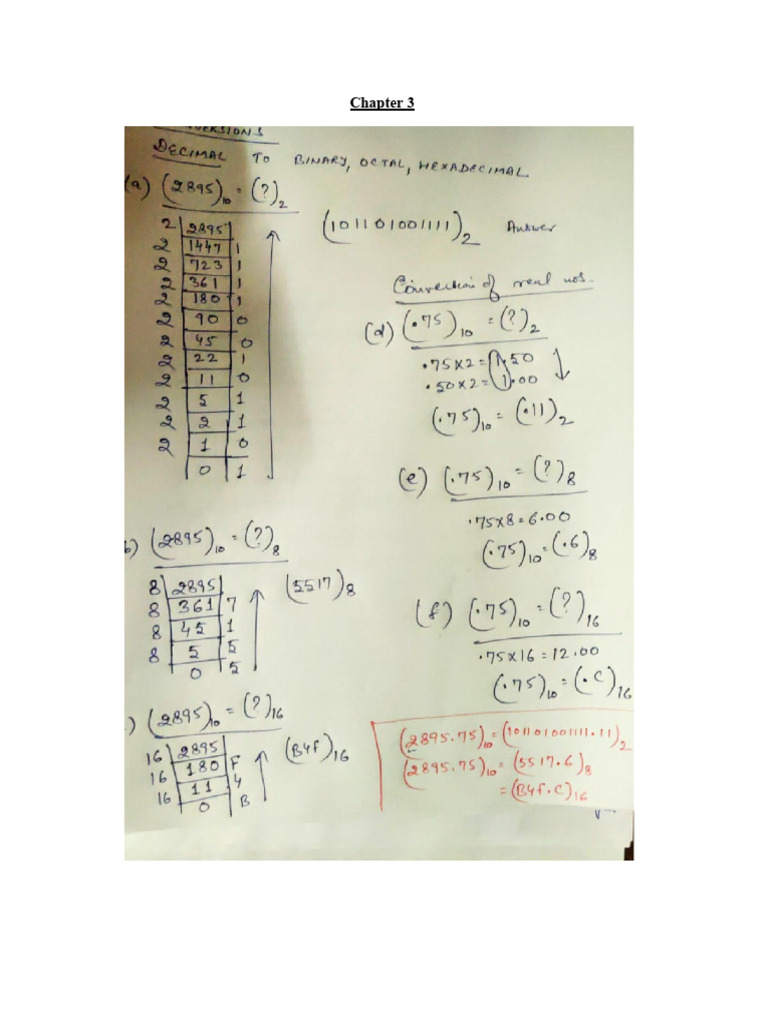 Chapter 3
VERSIONS
DECIMAL TO BINARY, OCTAL, HEXADECIMAL
(a) (2895)10 = (?)2
2 2895
2 1447 1
2 723 1
2 361 1
2 180 1
2 90 0
2 45 0
2 22 1
2 11 0
2 5 1
2 2 1
2 1 0
0 1
(101101001111)2 Answer
b) (2895)10 = (?)8
8 2895
8 361 7
8 45 1
8 5 5
0 5
(5517)8
) (2895)10 = (?)16
16 2895
16 180 F
16 11 4
0 B
(B4F)16
of real nos.
(d) (.75)10 = (?)2
.75×2=1.50
.50×2=1.00
(.75)10 = (.11)2
(e) (.75)10 = (?)8
.75×8=6.00
(.75)10=(.6)8
(f) (.75)10 = (?)16
.75×16=12.00
(.75)10=(.C)16
(2895.75)10=(101101001111.11)2
(2895.75)10 = (5517.6)8
=(B4F.C)16